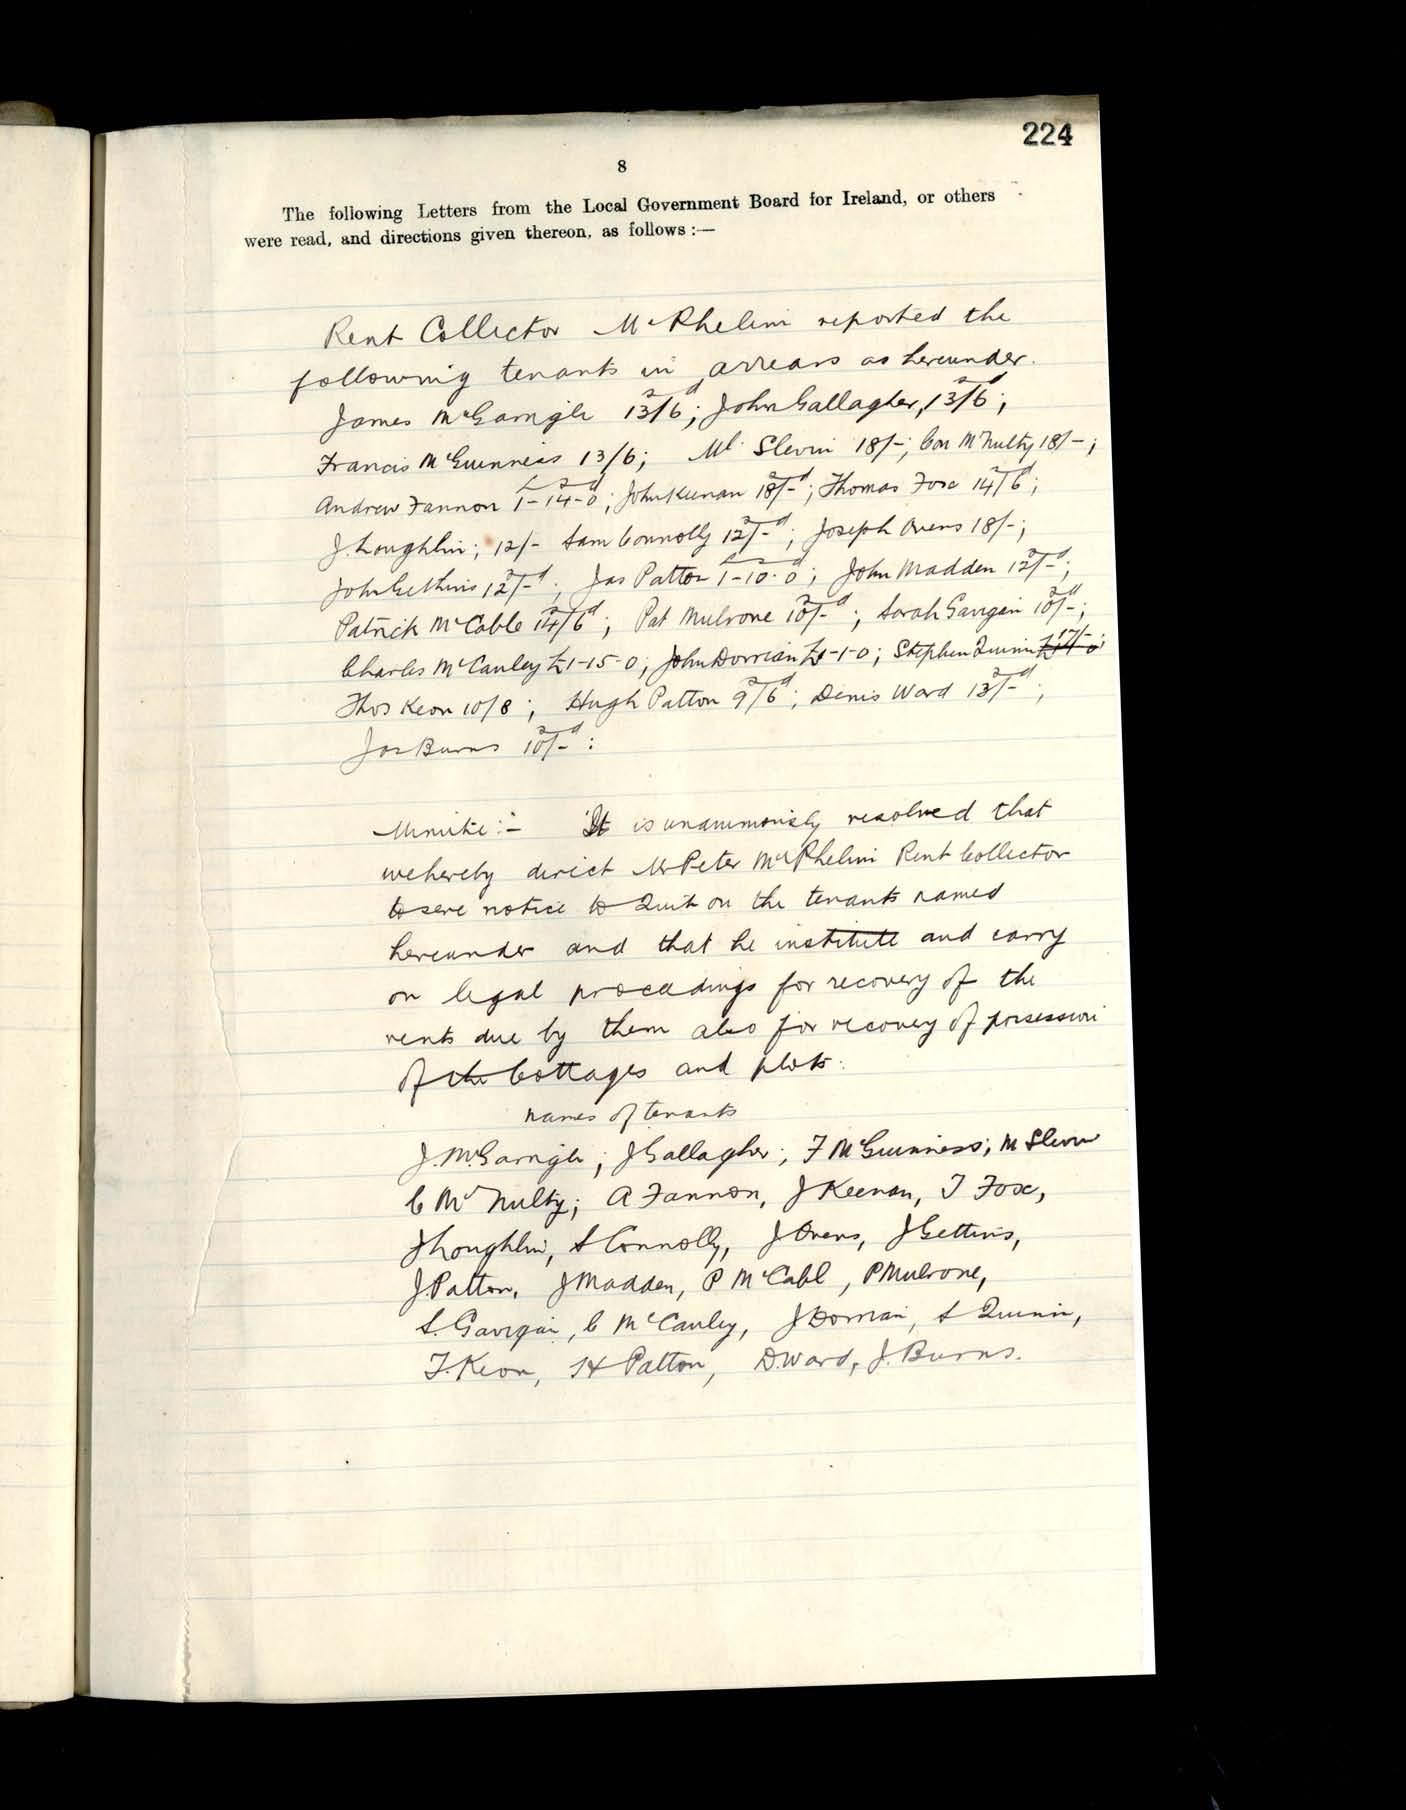 224
8
The following Letters from the Local Government Board for Ireland, or others
were read, and directions given thereon, as follows :—
Rent Collector McPhelim reported the
following tenants in arrears as hereunder.
James McGarrigle 13/6; John Gallagher, 13/6;
Francis McGuinness 13/6; Ml. Slevin 18/-; Con McNulty 18/-;
Andrew Fannon 1-14-0; John Keenan 18/-; Thomas Fox 14/6;
J. Loughlin; 12/- Sam Connolly 12/-; Joseph Ovens 18/-;
John Gethins 12/-; Jas Patton 1-10-0; John Madden 12/-;
Patrick McCabe 14/6; Pat Mulrone 10/-; Sarah Gavigan 10/-;
Charles McCauley £1-15-0; John Dorrian £1-1-0; Stephen Quinn 17/-
Thos Keon 10/8; Hugh Patton 9/6; Denis Ward 13/-;
Jas Burns 10/-:
Minute:- It is unanimously resolved that
we hereby direct Mr Peter McPhelim Rent Collector
to serve notice to Quit on the tenants named
hereunder and that he institute and carry
on legal proceedings for recovery of the
rents due by them also for recovery of possession
of the Cottages and plots.
names of tenants
J. McGarrigle; J Gallagher; F McGuinness; M Slevin
C McNulty; A Fannon, J Keenan, T Fox,
J Loughlin, S Connolly, J Ovens, J Gettins,
J. Patton, J Madden, P McCabe, P Mulrone,
S. Gavigan, C McCauley, J Dorrian, S Quinn,
T. Keon, H Patton, D. Ward, J. Burns.